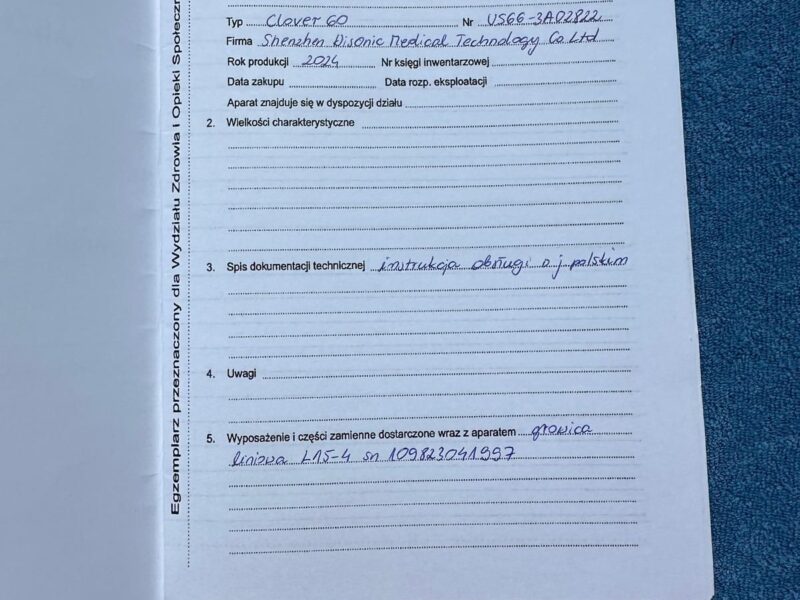 Typ Clover 60 Nr US66-3A02822
Firma Shenzhen Wisonic Medical Technology Co Ltd
Rok produkcji 2024 Nr księgi inwentarzowej
Data zakupu Data rozp. eksploatacji
Aparat znajduje się w dyspozycji działu
2. Wielkości charakterystyczne
3. Spis dokumentacji technicznej instrukcja obsługi o j. polskim
4. Uwagi
5. Wyposażenie i części zamienne dostarczone wraz z aparatem głowica
liniowa L15-4 sn 109823041997
Egzemplarz przeznaczony dla Wydziału Zdrowia i Opieki